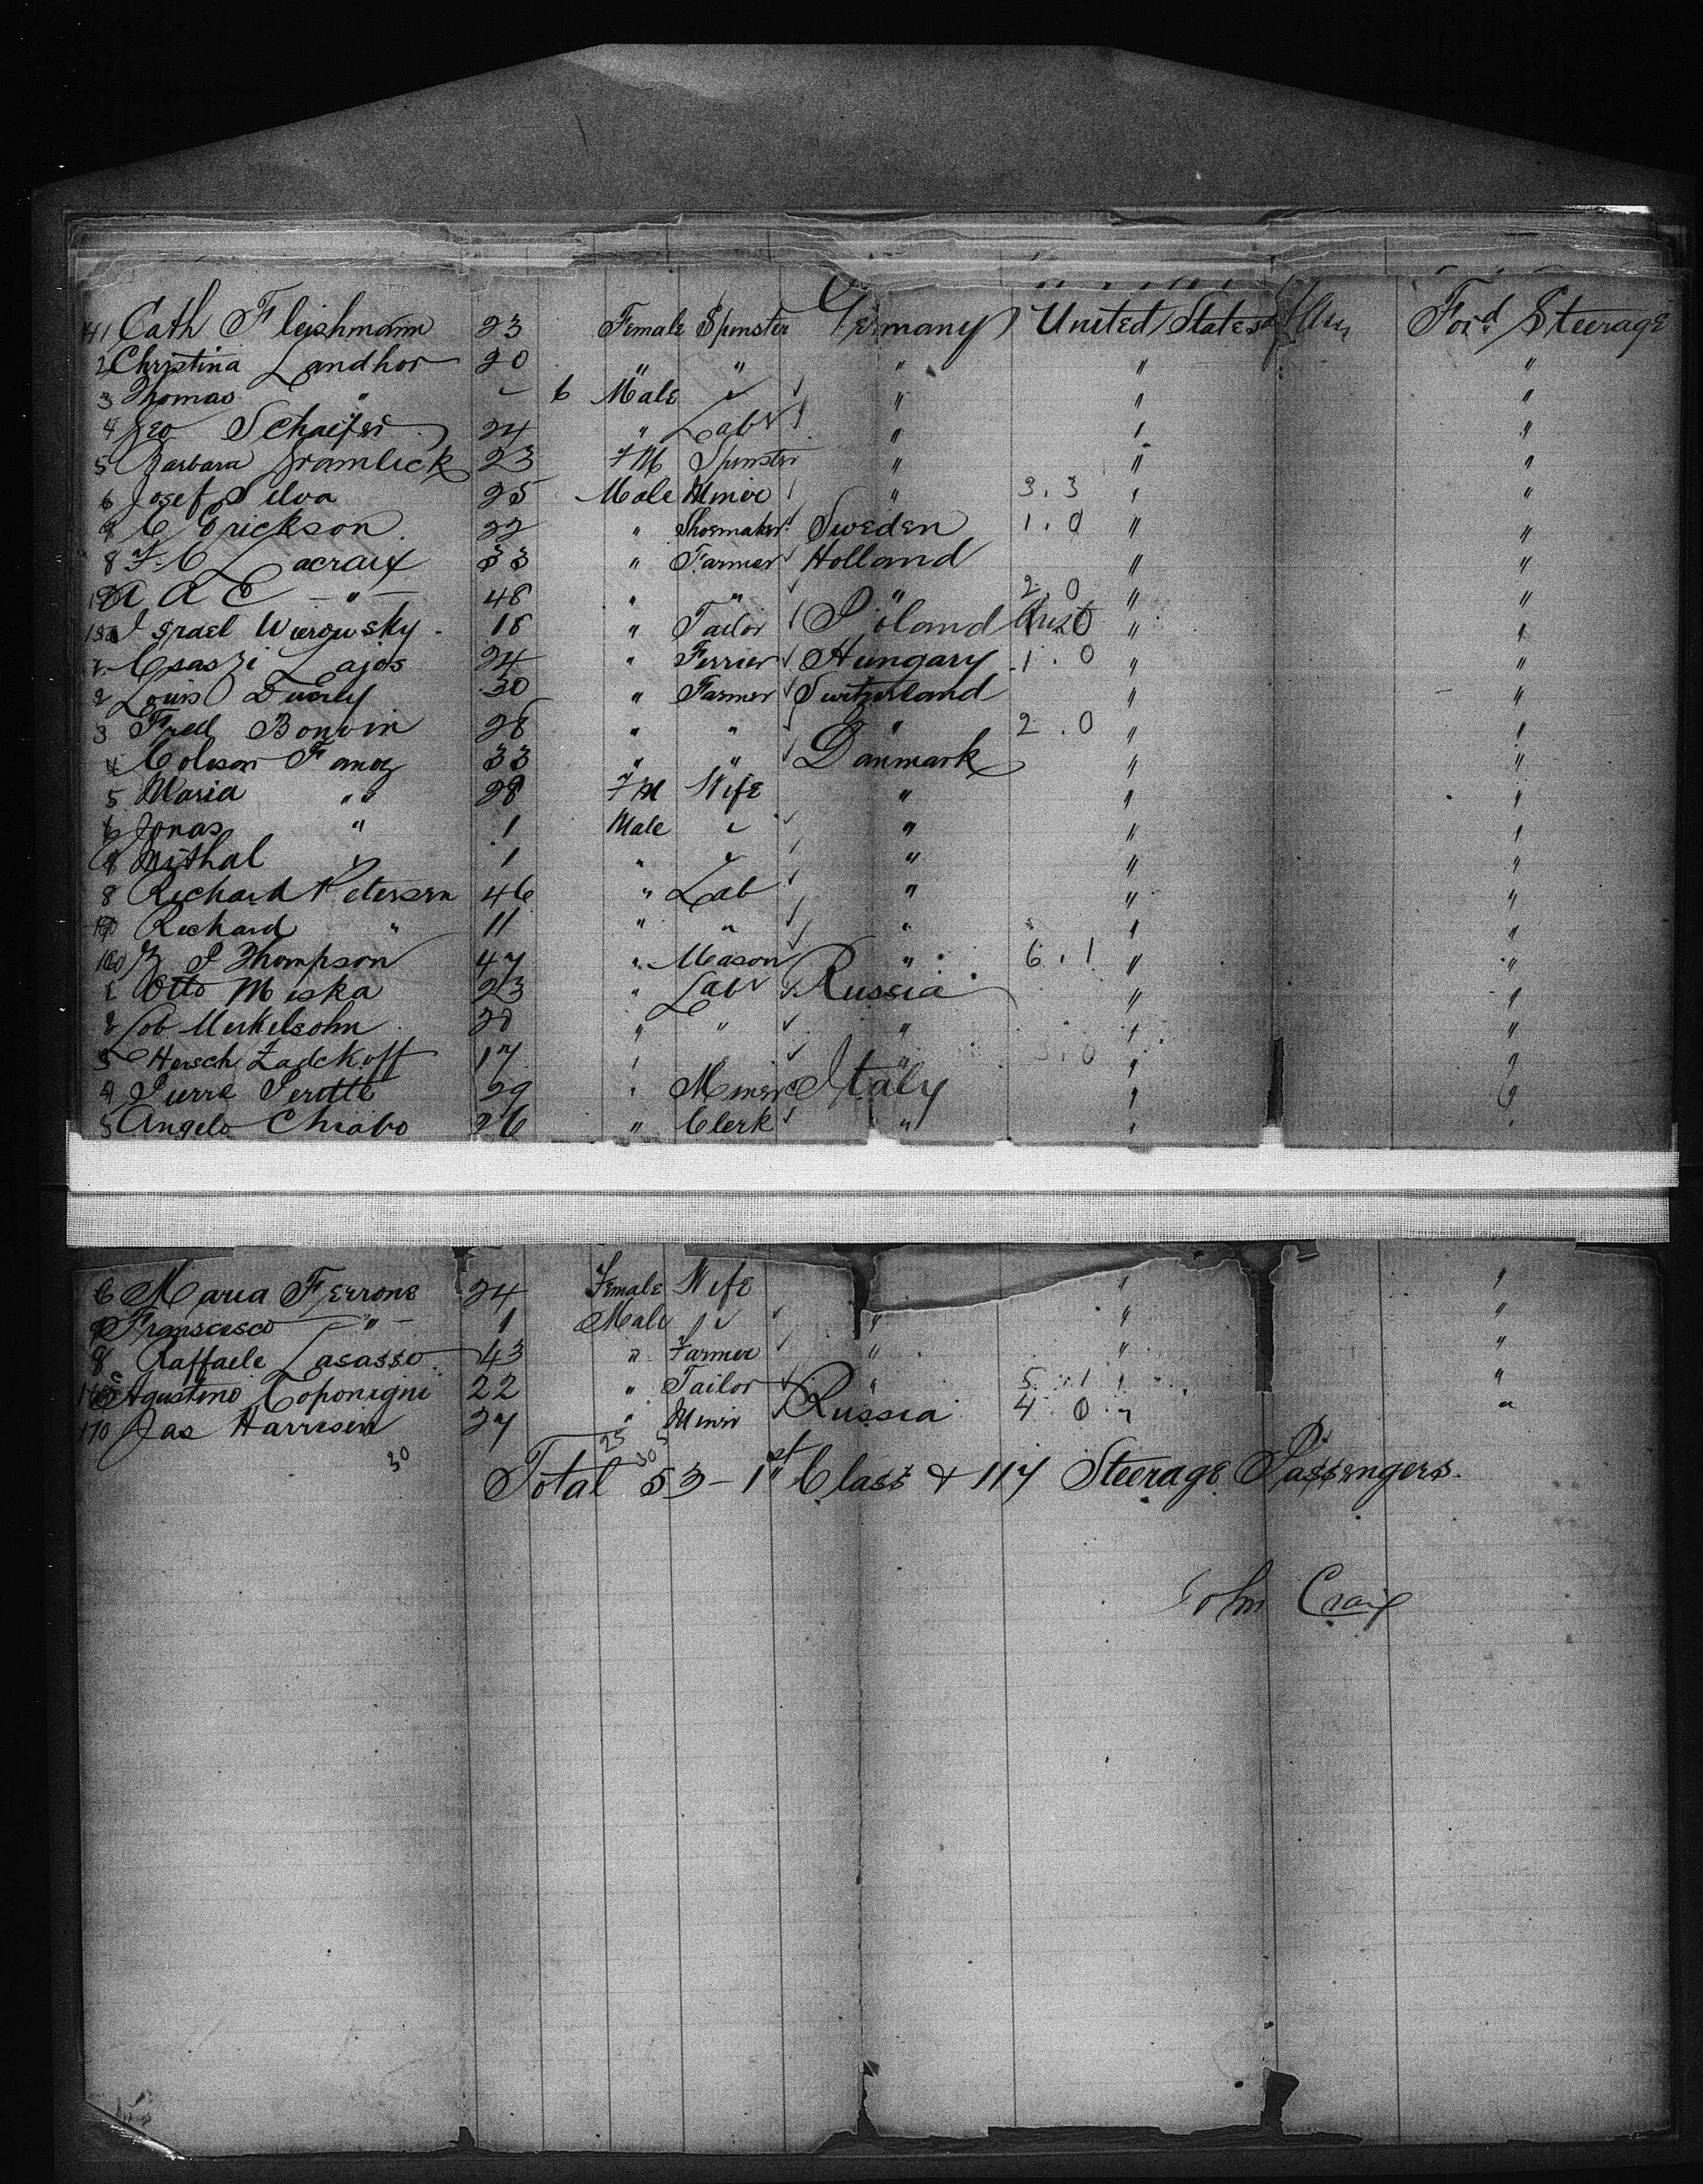 141 Cath Fleishmann 23 Female Spinster Germany United States of Am Ford Steerage
2 Christina Landhor 20 " " " " "
3 Thomas " 6 Male " " "
4 Geo Schaefer 24 " Labr " " "
5 Barbara Gramlick 23 FM Spinster " " "
6 Josef Silva 25 Male Miner " 3.3 " "
C Erickson 22 " Shoemaker Sweden 1.0 " "
8 F. C Lacraix 33 " Farmer Holland " "
A A C — " — 48 " " " 2.0 " "
150 Israel Wierowsky 18 " Tailor Poland Aust " "
Csaszi Lajos 24 " Ferrier Hungary 1.0 " "
2 Louis 30 " Farmer Switzerland " "
3 Fred Bonvin 28 " " " 2.0 " "
4 Colesar 33 " " Danmark " "
5 Maria " 28 FM Wife " " "
6 Jonas " 1 Male " " "
Mithal " 1 " " " "
8 Richard Petersen 46 " Lab " " "
Richard " 11 " " " " "
160 J Thompson 47 " Mason " 6.1 " "
1 Otto Miska 23 " Labr Russia " "
2 Lob Merkelsohn 28 " " " " "
3 Hersch Zadckoff 17 " " 3.0 " "
4 Pierre Perotte 29 " Miner Italy " "
5 Angelo Chiabo 26 " Clerk " " "
6 Maria Ferrone 24 Female Wife " "
Franscesco — " — 1 Male " " "
8 Raffaele Lasasso 43 " Farmer " " "
Agustino Coponigni 22 " Tailor " 5.1 " "
170 Jas Harrison 27 " Miner Russia 4.0 " "
30
25 5
30
Total 53 – 1st Class & 117 Steerage Passengers.
John Craig